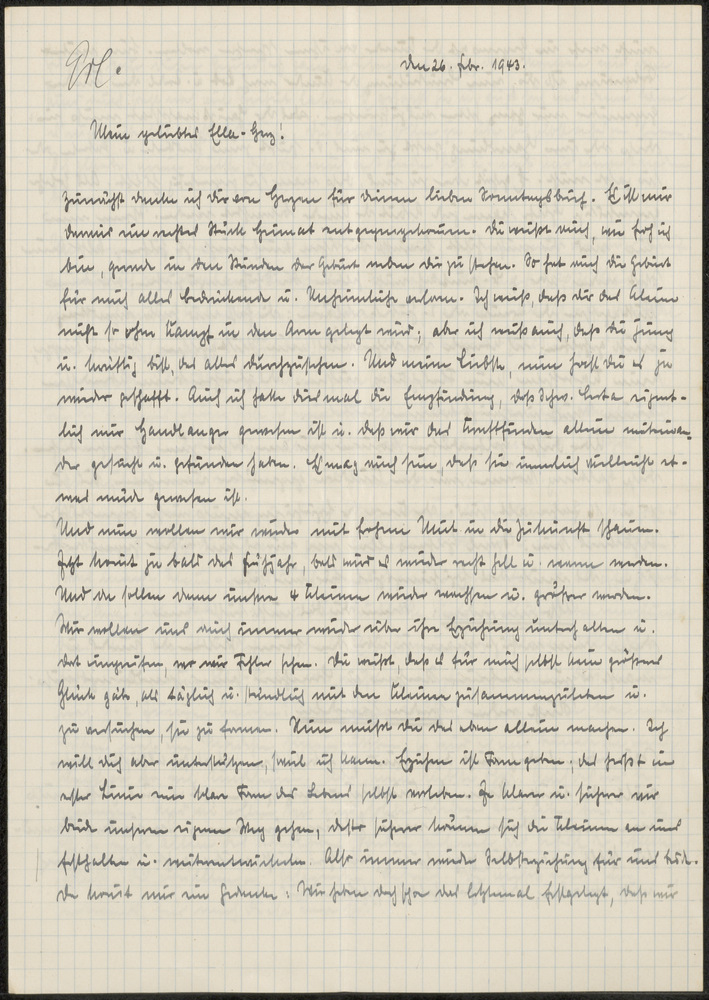 Erl.
Den 26. Febr. 1943.
Mein geliebtes Ella-Herz!
Zunächst danke ich dir von Herzen für deinen lieben Sonntagsbrief. Es ist mir
damit ein rechtes Stück Heimat entgegengekommen. Du weißt auch, wie froh ich
bin, gerade in den Stunden der Geburt neben dir zu stehen. So hat auch die Geburt
für mich alles Bedrückende u. Unheimliche verloren. Ich weiß, daß dir das Kleine
nicht so ohne Kampf in den Arm gelegt wird; aber ich weiß auch, daß du jung
u. kräftig bist, das alles durchzustehen. Und meine Liebste, nun hast du es ja
wieder geschafft. Auch ich hatte diesmal die Empfindung, daß Schw. Herta eigent-
lich nur Handlanger gewesen ist u. daß wir das Kindlein allein miteinan-
der gesucht u. gefunden haben. Es mag auch sein, daß sie innerlich vielleicht et-
was müde gewesen ist.
Und nun wollen wir wieder mit frohem Mut in die Zukunft schauen.
Jetzt kommt ja bald das Frühjahr, bald wird es wieder recht hell u. warm werden.
Und da sollen denn unsere 4 Kleinen wieder wachsen u. größer werden.
Wir wollen uns auch immer wieder über ihre Erziehung unterhalten u.
dort eingreifen, wo wir Fehler sehen. Du weißt, daß es für mich selbst kein größeres
Glück gäbe, als täglich u. stündlich mit den Kleinen zusammenzuleben u.
zu versuchen, sie zu formen. Nun mußt du das eben allein machen. Ich
will dich aber unterstützen, soviel ich kann. Erziehen ist Form geben; das heißt in
erster Linie eine klare Form des Lebens selbst vorleben. Je klarer u. sicherer wir
beide unseren eigenen Weg gehen, desto sicherer können sich die Kleinen an uns
festhalten u. weiterentwickeln. Also immer wieder Selbsterziehung für uns beide.
Da kommt mir ein Gedanke: Wir haben doch schon das letztemal festgelegt, daß wir